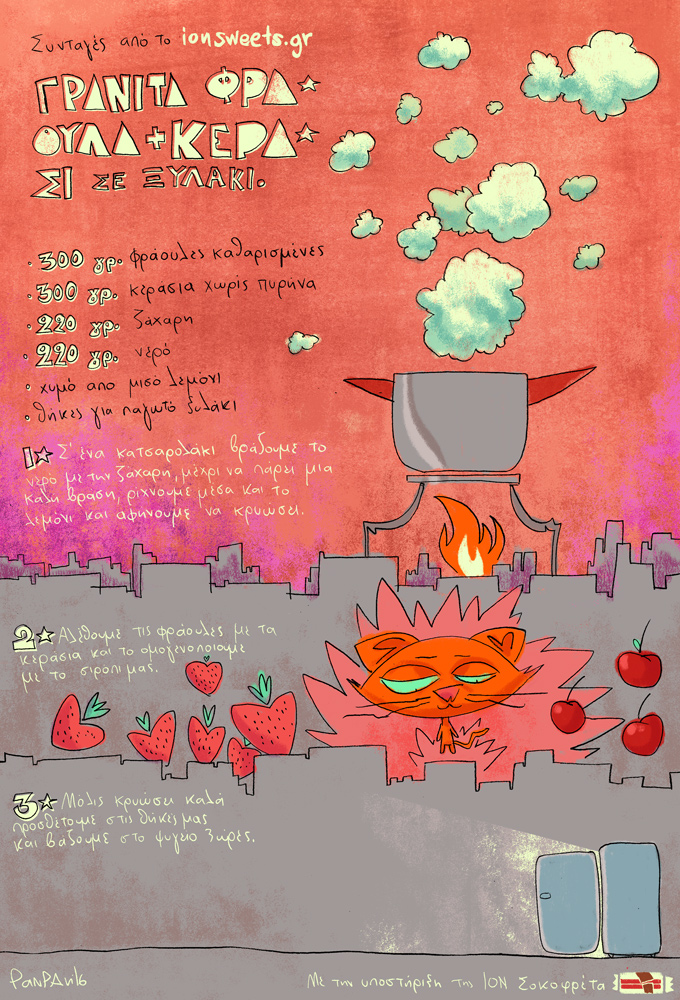 Συνταγές από το ionsweets.gr
ΓΡΑΝΙΤΑ ΦΡΑ
ΟΥΛΑ + ΚΕΡΑ
ΣΙ ΣΕ ΞΥΛΑΚΙ.
· 300 γρ. φράουλες καθαρισμένες
· 300 γρ. κεράσια χωρίς πυρήνα
· 220 γρ. ζάχαρη
· 220 γρ. νερό
· χυμό απο μισό λεμόνι
· θήκες για παγωτό ξυλάκι
1★ Σ' ένα κατσαρολάκι βράζουμε το
νερό με την ζάχαρη, μέχρι να πάρει μια
καλή βράση, ριχνουμε μέσα και το
λεμόνι και αφήνουμε να κρυώσει.
2★ Αλέθουμε τις φράουλες με τα
κεράσια και το ομογενοποιουμε
με το σιρόπι μας.
3★ Μόλις κρυώσει καλά
προσθέτουμε στις θήκες μας
και βάζουμε στο ψυγείο 3 ώρες.
Με την υποστήριξη της ΙΟΝ Σοκοφρέτα